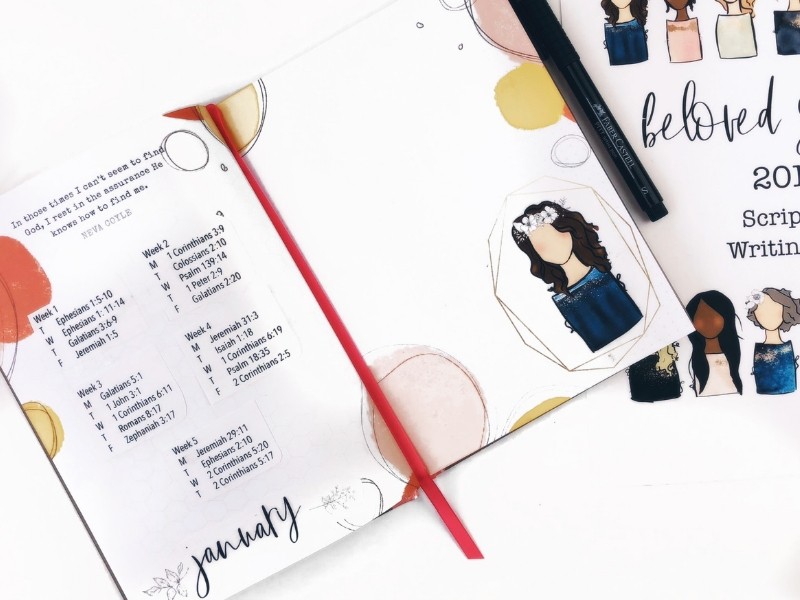 In those times I can't seem to find
God, I rest in the assurance He
knows how to find me.
NEVA COYLE
Week 1
T Ephesians 1:5-10
W Ephesians 1: 11-14
T Galatians 3:6-9
F Jeremiah 1:5
Week 2
M 1 Corinthians 3:9
T Colossians 2:10
W Psalm 139:14
T 1 Peter 2:9
F Galatians 2:20
Week 3
M Galatians 5:1
T 1 John 3:1
W 1 Corinthians 6:11
T Romans 8:17
F Zephaniah 3:17
Week 4
M Jeremiah 31:3
T Isaiah 1:18
W 1 Corinthians 6:19
T Psalm 18:35
F 2 Corinthians 2:5
Week 5
M Jeremiah 29:11
T Ephesians 2:10
W 2 Corinthians 5:20
T 2 Corinthians 5:17
january
FABER-CASTELL
S
beloved
201
Scrip
Writin